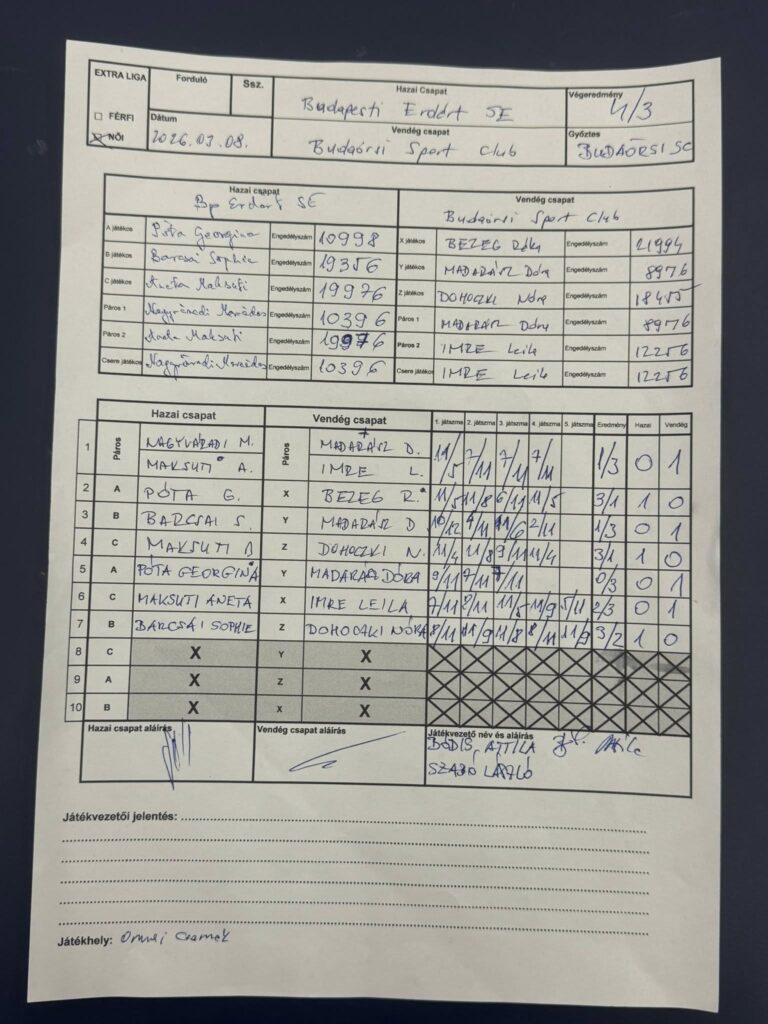 EXTRA LIGA
Forduló
Ssz.
Hazai Csapat
Budapesti Erdért SE
Végeredmény
4/3
☐ FÉRFI
☒ NŐI
Dátum
2026.03.08.
Vendég csapat
Budaörsi Sport Club
Győztes
BUDAÖRSI SC
Hazai csapat
Bp Erdért SE
Vendég csapat
Budaörsi Sport Club
A játékos Póta Georgina Engedélyszám 10998 X játékos BEZEG Réka Engedélyszám 21994
B játékos Barcsai Sophie Engedélyszám 19356 Y játékos MADARÁSZ Dóra Engedélyszám 8976
C játékos Aneta Maksuti Engedélyszám 19976 Z játékos DOHOCZKI Nóra Engedélyszám 18455
Páros 1 Nagyváradi Mercédes Engedélyszám 10396 Páros 1 MADARÁSZ Dóra Engedélyszám 8976
Páros 2 Aneta Maksuti Engedélyszám 19976 Páros 2 IMRE Leila Engedélyszám 12256
Csere játékos Nagyváradi Mercédes Engedélyszám 10396 Csere játékos IMRE Leila Engedélyszám 12256
Hazai csapat Vendég csapat 1. játszma 2. játszma 3. játszma 4. játszma 5. játszma Eredmény Hazai Vendég
1 Páros NAGYVÁRADI M. Páros MADARÁSZ D. 11/5 7/11 7/11 7/11 1/3 0 1
MAKSUTI A. IMRE L.
2 A PÓTA G. X BEZEG R. 11/5 11/8 6/11 11/5 3/1 1 0
3 B BARCSAI S. Y MADARÁSZ D 10/12 4/11 11/6 2/11 1/3 0 1
4 C MAKSUTI Z DOHOCZKI N. 11/4 11/8 9/11 11/4 3/1 1 0
5 A PÓTA GEORGINA Y MADARÁSZ DÓRA 9/11 7/11 7/11 0/3 0 1
6 C MAKSUTI ANETA X IMRE LEILA 7/11 8/11 11/5 11/9 5/11 2/3 0 1
7 B BARCSAI SOPHIE Z DOHOCZKI NÓRA 8/11 11/9 11/8 8/11 11/9 3/2 1 0
8 C X Y X
9 A X Z X
10 B X X X
Hazai csapat aláírás
Vendég csapat aláírás
Játékvezető név és aláírás
BÓDIS ATTILA
SZABÓ LÁSZLÓ
Játékvezetői jelentés:
Játékhely: